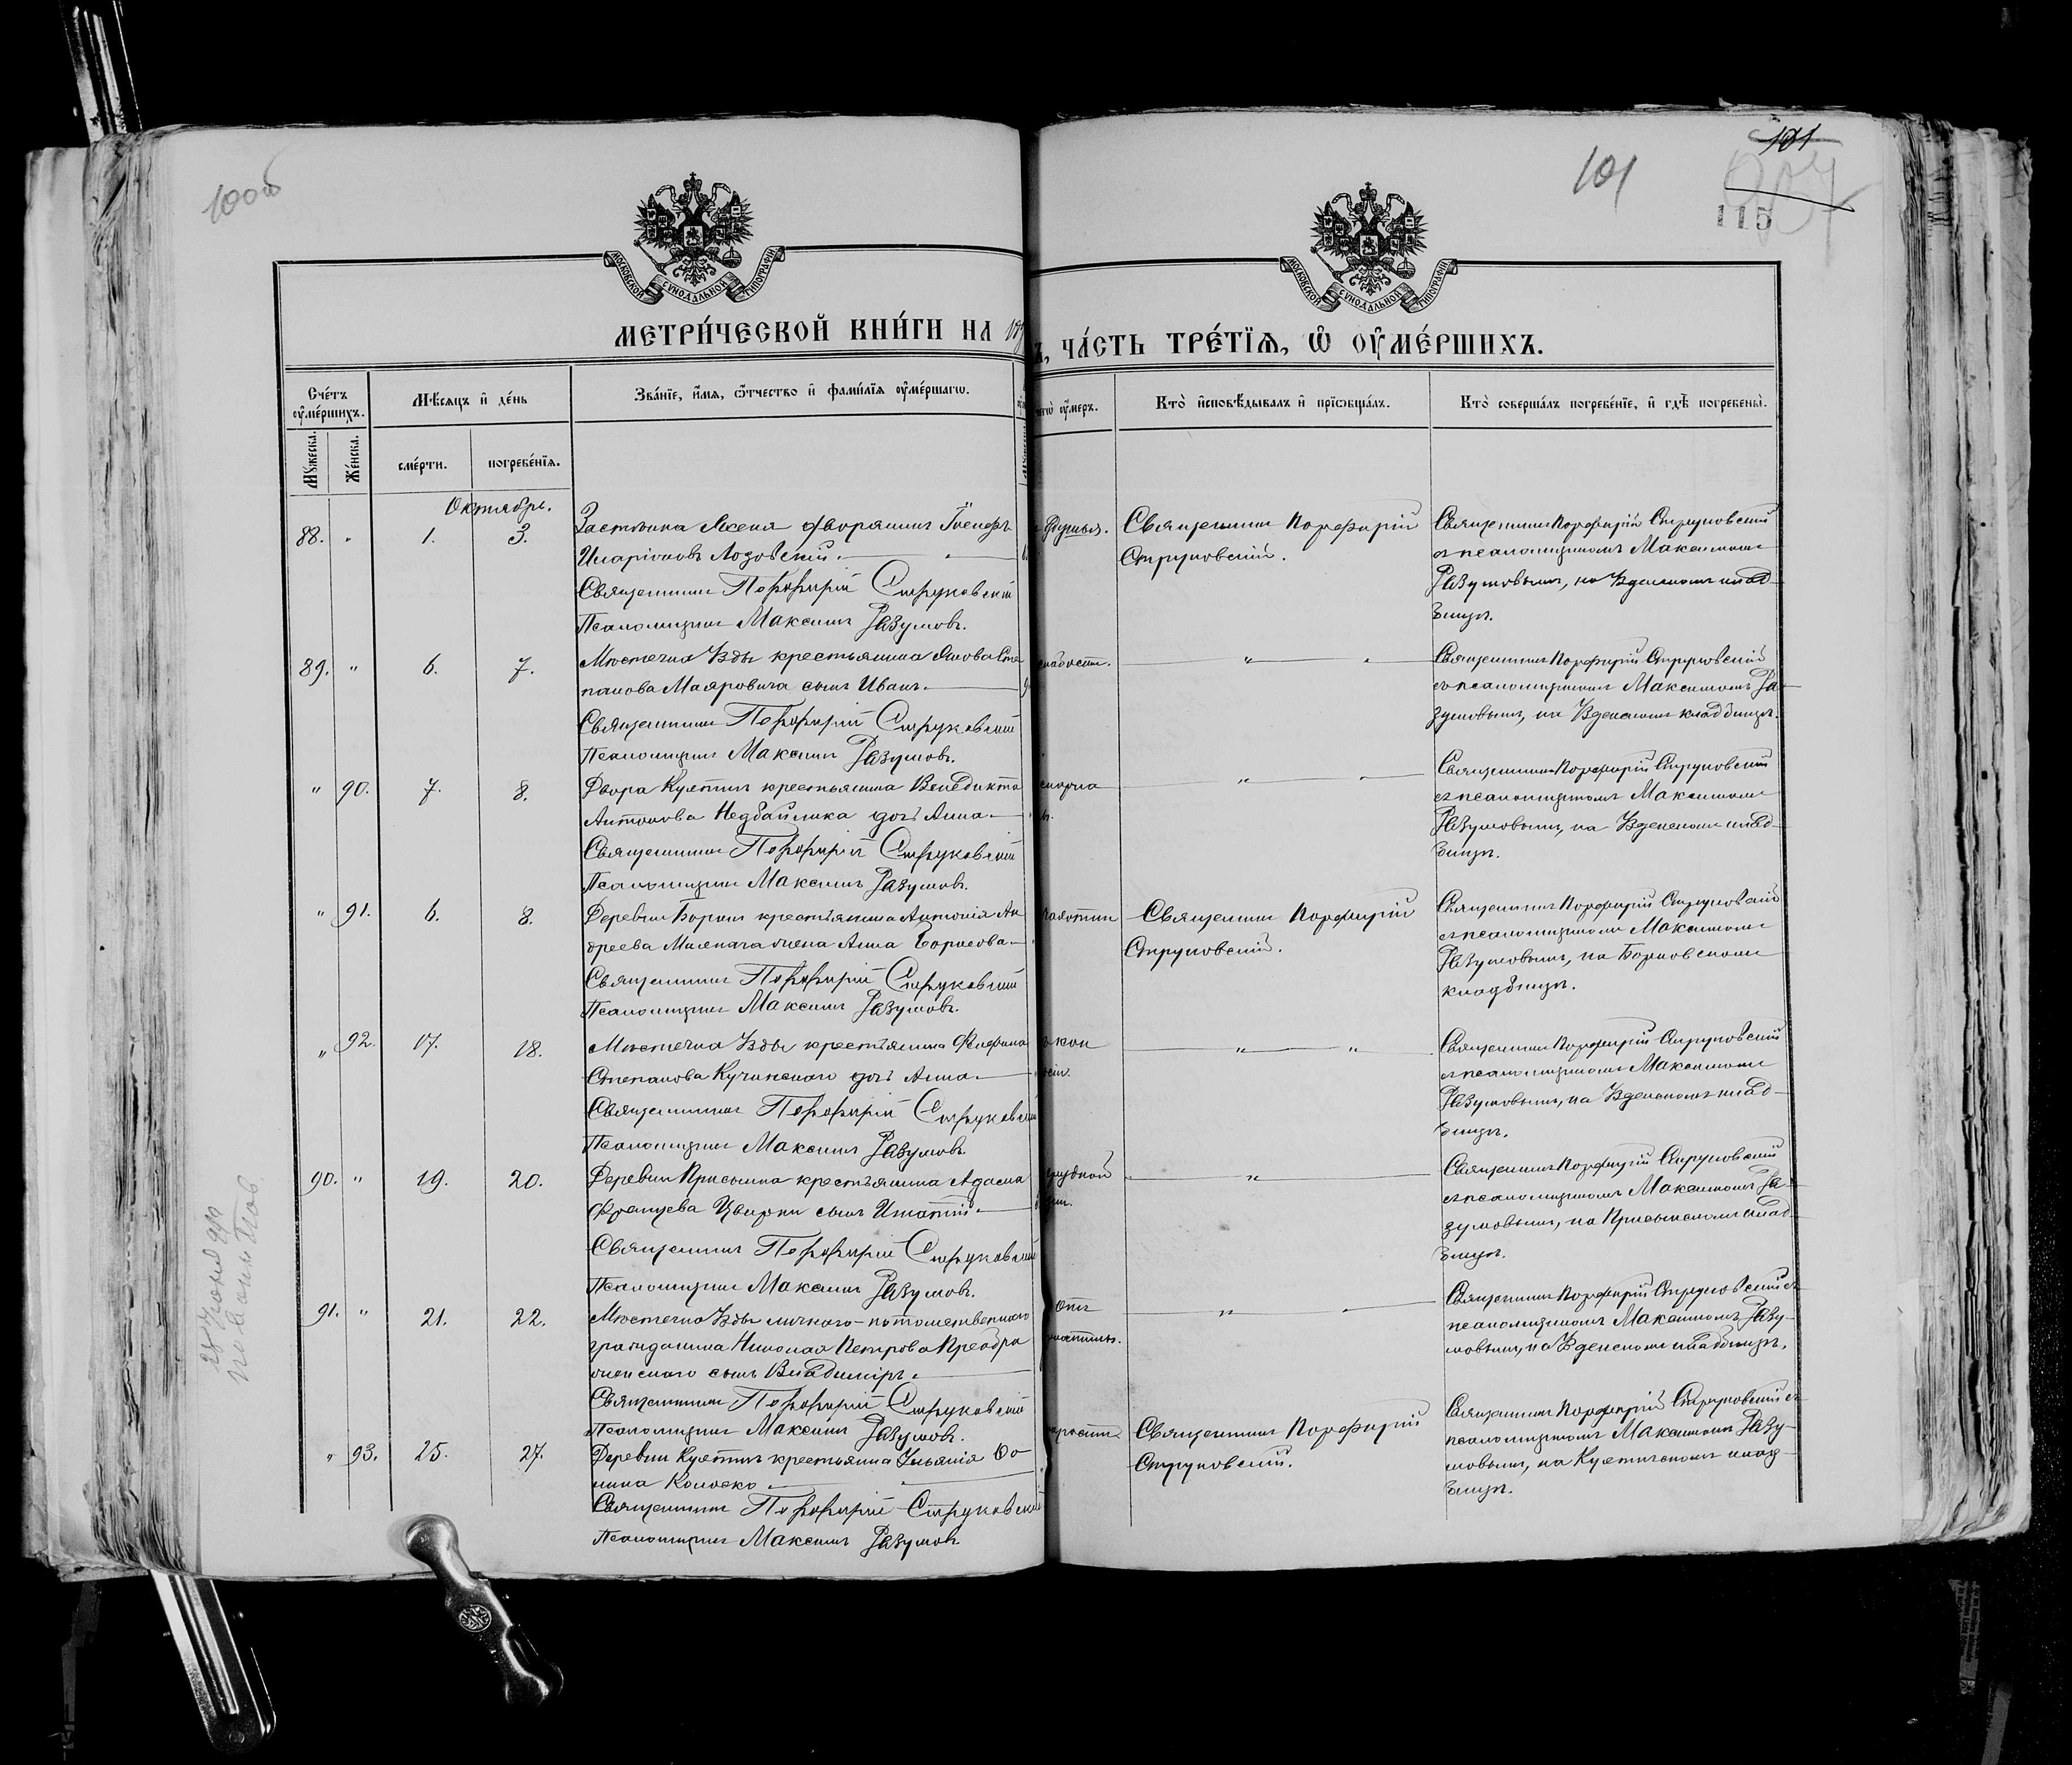 100об
101
101
115
МОСКОВСКОЙ СУНОДАЛЬНОЙ ТИПОГРАФІИ
МОСКОВСКОЙ СУНОДАЛЬНОЙ ТИПОГРАФІИ
МЕТРИ́ЧЕСКОЙ КНИ́ГИ НА
Ъ, ЧА́СТЬ ТРЕ́ТЇѦ, Ѡ ОУМЕ́РШИХЪ.
Сче́тъ оуме́ршихъ.
Мѣ́сяцъ и де́нь
Зва́нїе, и́мя, ѻтчество и фами́лїя оуме́ршагѡ.
чегѡ̀ оу́меръ.
Кто̀ исповѣ́дывалъ и прїѡбща́лъ.
Кто̀ соверша́лъ погребе́нїе, и гдѣ̀ погребены̀.
Мꙋ́жеска.
Же́нска.
сме́рти.
погребе́нїя.
Октябрь.
88. " 1. 3.
Застѣнка Ясеня дворянинъ
Иларіоновъ Лозовскій.
Священникъ Порфирій Струковскій
Псаломщикъ Максимъ Разумовъ.
Священникъ Порфирій
Струковскій.
Священникъ Порфирій Струковскій
съ псаломщикомъ Максимомъ
Разумовымъ, на Узденскомъ клад-
бищѣ.
89. " 6. 7.
Мѣстечка Узды крестьянина Якова Сте
панова Маяровича сынъ Иванъ.
Священникъ Порфирій Струковскій
Псаломщикъ Максимъ Разумовъ.
слабости.
" "
Священникъ Порфирій Струковскій
съ псаломщикомъ Максимомъ Ра-
зумовымъ, на Узденскомъ кладбищѣ.
" 90. 7. 8.
Двора Кухтичъ крестьянина Венедикта
Антонова Недбайлика дочь Анна
Священникъ Порфирій Струковскій
Псаломщикъ Максимъ Разумовъ.
" "
Священникъ Порфирій Струковскій
съ псаломщикомъ Максимомъ
Разумовымъ, на Узденскомъ клад-
бищѣ.
" 91. 6. 8.
Деревни Борки крестьянина Антонія Ан
дреева жена Анна Борисова
Священникъ Порфирій Струковскій
Псаломщикъ Максимъ Разумовъ.
Священникъ Порфирій
Струковскій.
Священникъ Порфирій Струковскій
съ псаломщикомъ Максимомъ
Разумовымъ, на Борковскомъ
кладбищѣ.
" 92. 17. 18.
Мѣстечка Узды крестьянина
Степанова Кучинскаго дочь Анна
Священникъ Порфирій Струковскій
Псаломщикъ Максимъ Разумовъ.
" "
Священникъ Порфирій Струковскій
съ псаломщикомъ Максимомъ
Разумовымъ, на Узденскомъ клад-
бищѣ.
90. " 19. 20.
Деревни Присынка крестьянина Адама
Францева Цвирки сынъ Игнатій
Священникъ Порфирій Струковскій
Псаломщикъ Максимъ Разумовъ.
грудной
"
Священникъ Порфирій Струковскій
съ псаломщикомъ Максимомъ Ра-
зумовымъ, на Присынскомъ клад-
бищѣ.
91. " 21. 22.
Мѣстечка Узды личнаго-потомственнаго
гражданина Николая Петрова Преобра
женскаго сынъ Владиміръ.
Священникъ Порфирій Струковскій
Псаломщикъ Максимъ Разумовъ.
отъ
" "
Священникъ Порфирій Струковскій съ
псаломщикомъ Максимомъ Разу-
мовымъ, на Узденскомъ кладбищѣ.
" 93. 25. 27.
Деревни Кухтичъ крестьянка Ульянія Ѳо
мина Колоско
Священникъ Порфирій Струковскій
Псаломщикъ Максимъ Разумовъ
Священникъ Порфирій
Струковскій.
Священникъ Порфирій Струковскій съ
псаломщикомъ Максимомъ Разу-
мовымъ, на Кухтичскомъ клад-
бищѣ.